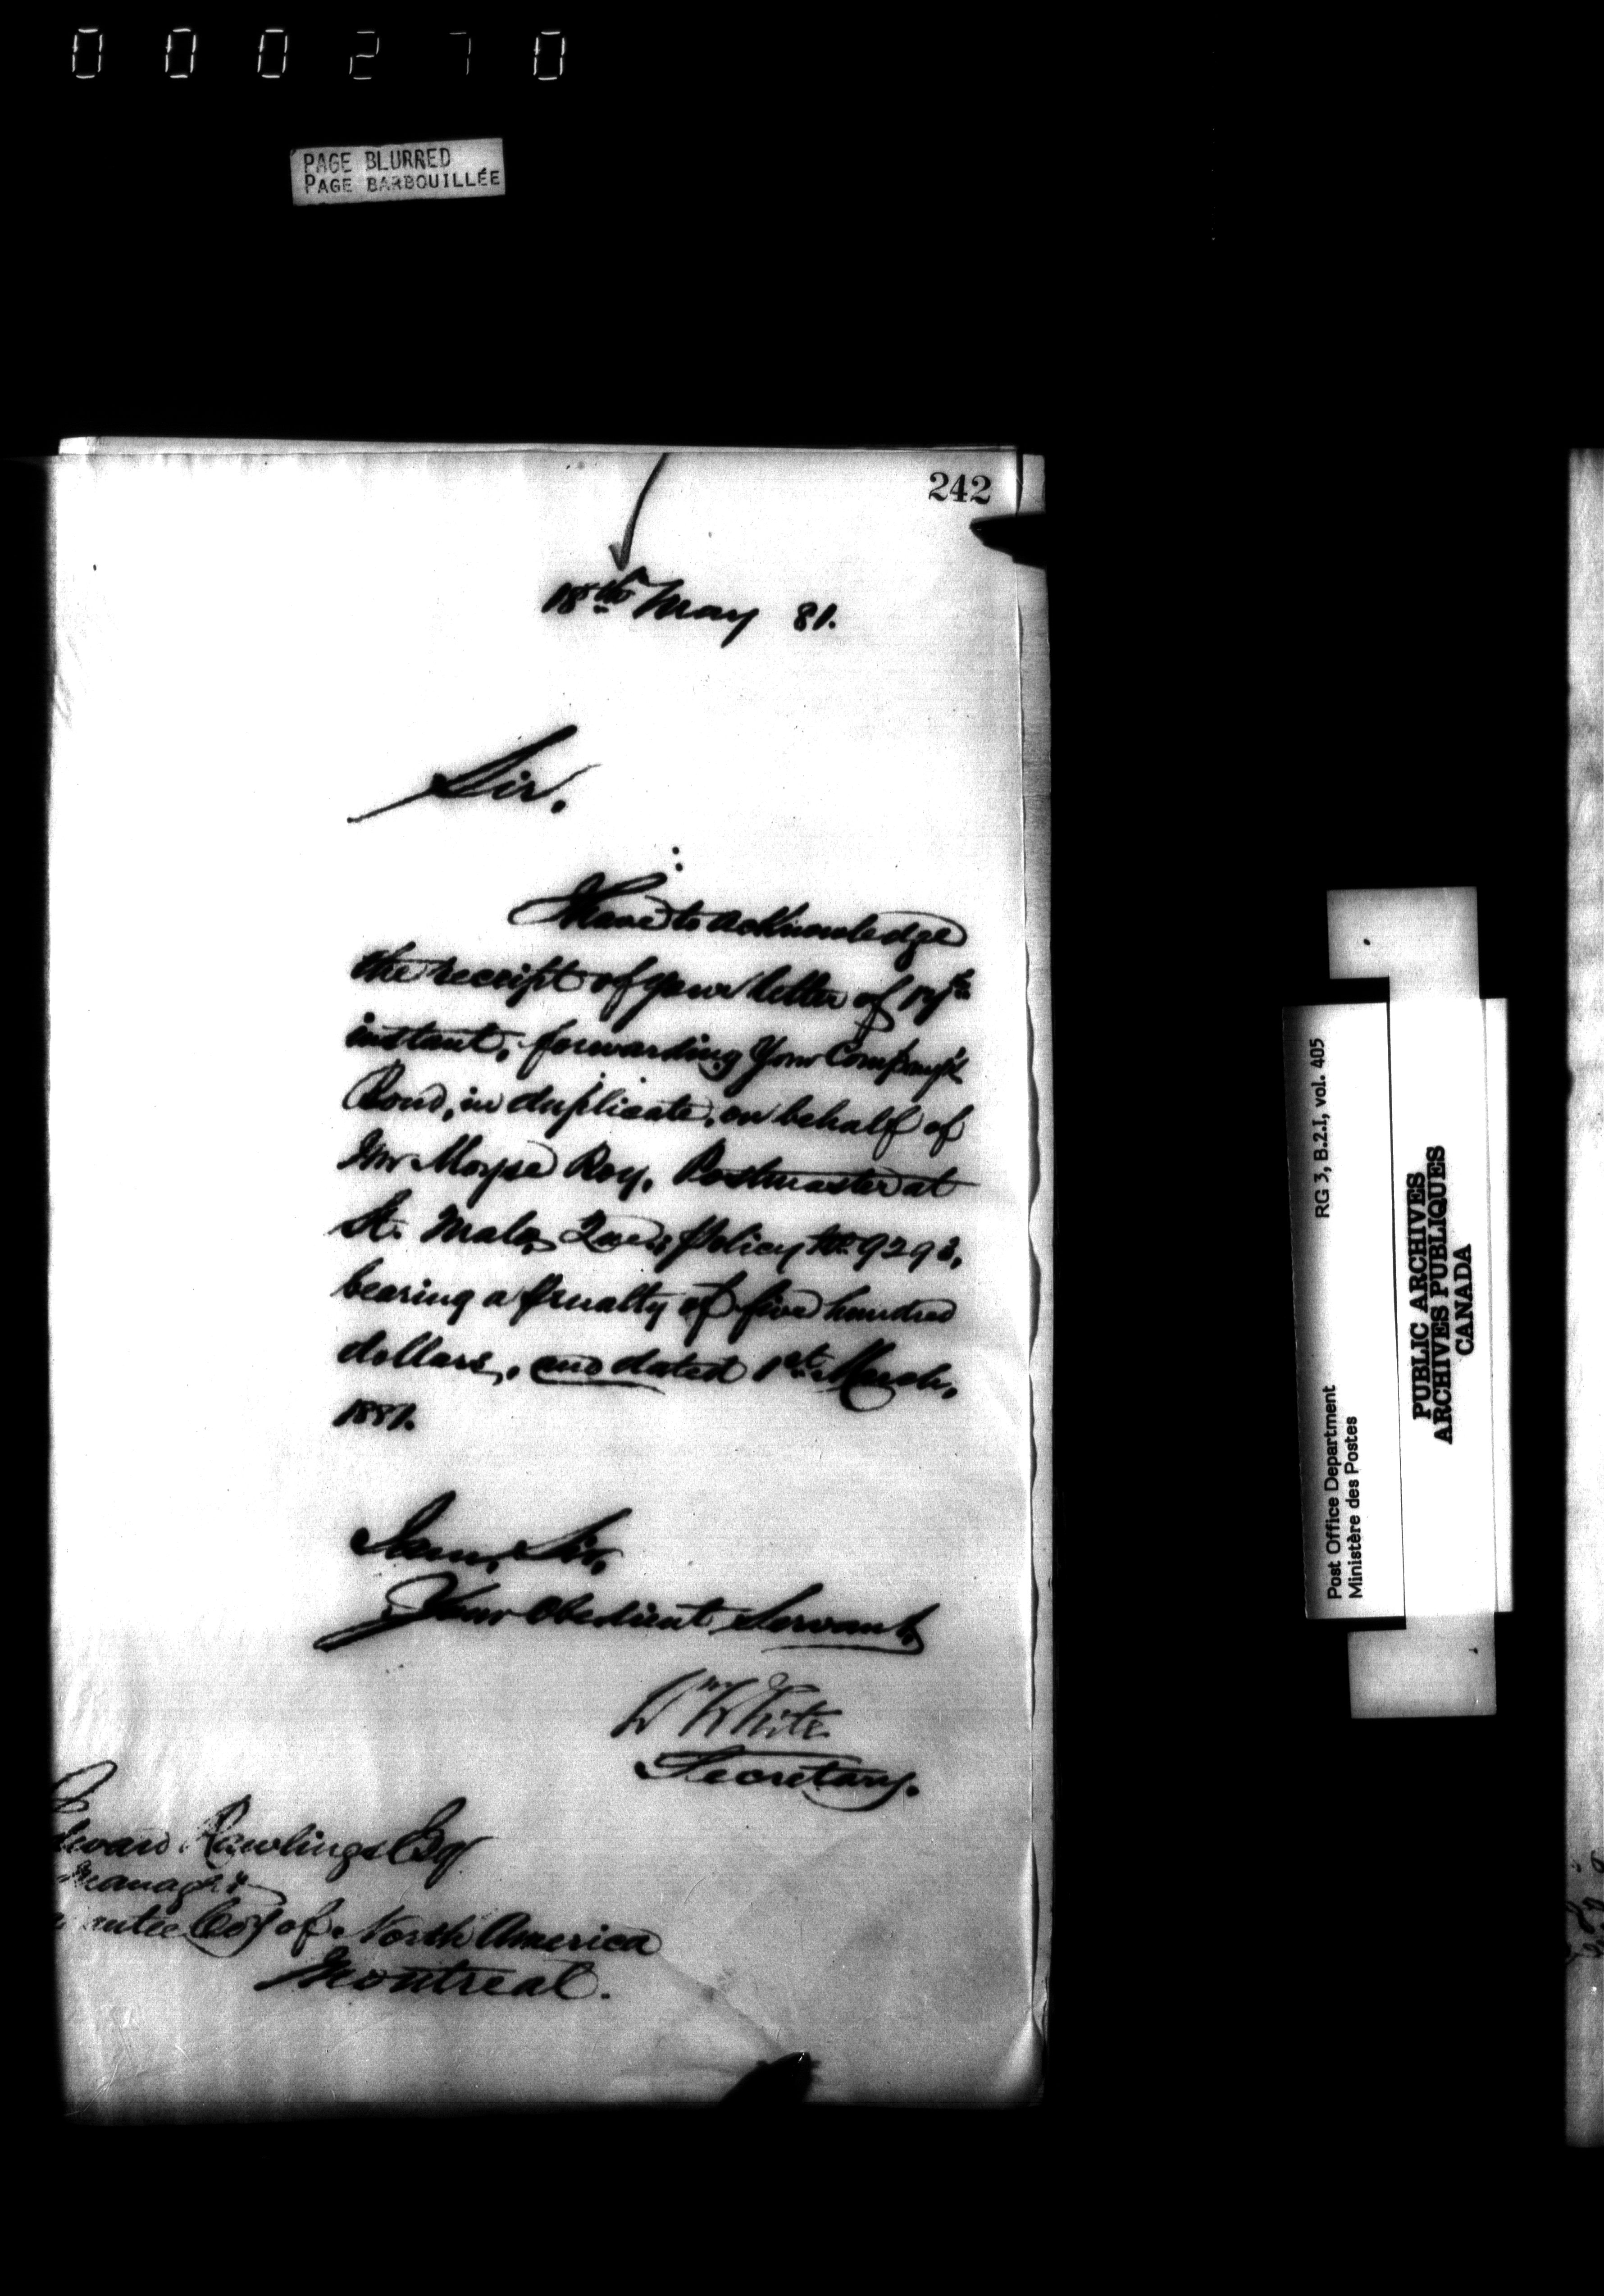 000270
PAGE BLURRED
PAGE BARBOUILLÉE
242
18th May 81.
Sir.
I have to acknowledge
the receipt of your letter of 17th
instant, forwarding Your Company's
Bond, in duplicate, on behalf of
Mr Moyse Roy, Postmaster at
St. Malo, Quebec, policy No 9293,
bearing a penalty of five hundred
dollars, and dated 1st March,
1881.
I am, Sir,
Your Obedient Servant,
Wm White
Secretary.
Edward Rawlings Esq
Manager
antee Coy of North America
Montreal.
RG 3, B.2.I, vol. 405
Post Office Department
Ministère des Postes
PUBLIC ARCHIVES
ARCHIVES PUBLIQUES
CANADA